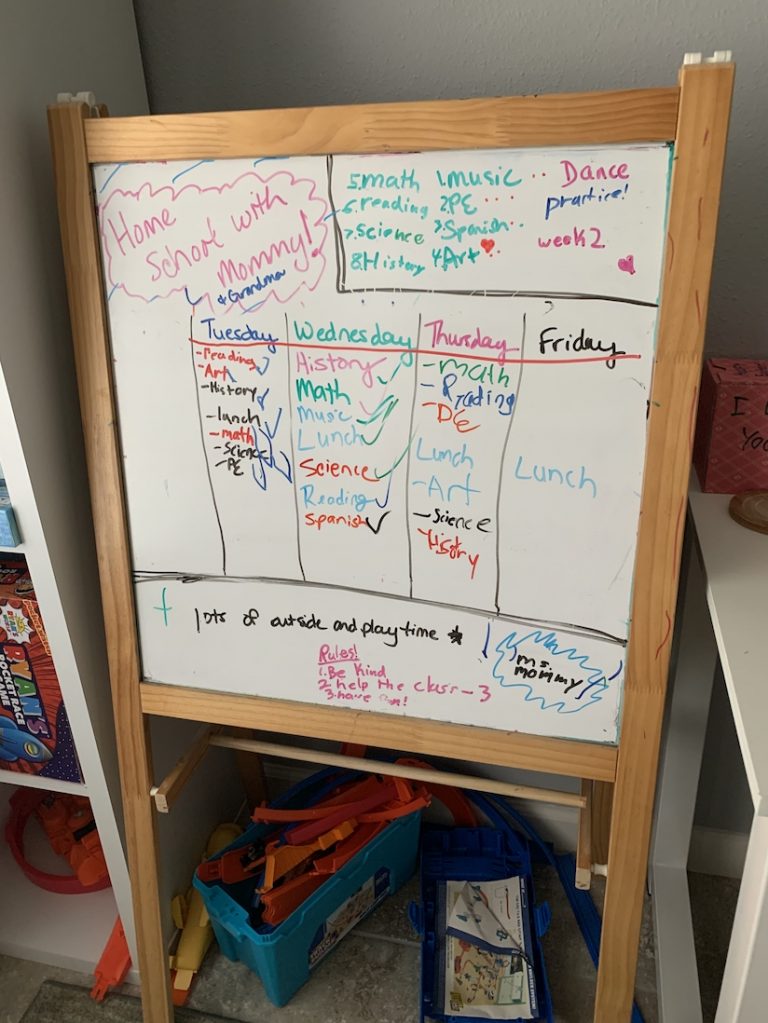 Home
School with
Mommy!
& Grandma
5. math 1. music
6. reading 2. PE
7. Science 3. Spanish
8. History 4. Art
Dance
practice!
week 2
Tuesday
- reading
- Art
- History
- lunch
- math
- Science
- PE
Wednesday
History
Math
Music
Lunch
Science
Reading
Spanish
Thursday
- math
- Reading
- PE
Lunch
- Art
- Science
- History
Friday
Lunch
lots of outside and playtime *
Rules!
1. Be Kind
2. help the class - 3
3. have fun!
ms.
mommy
RYAN'S
ROCKET RACE
I
YO